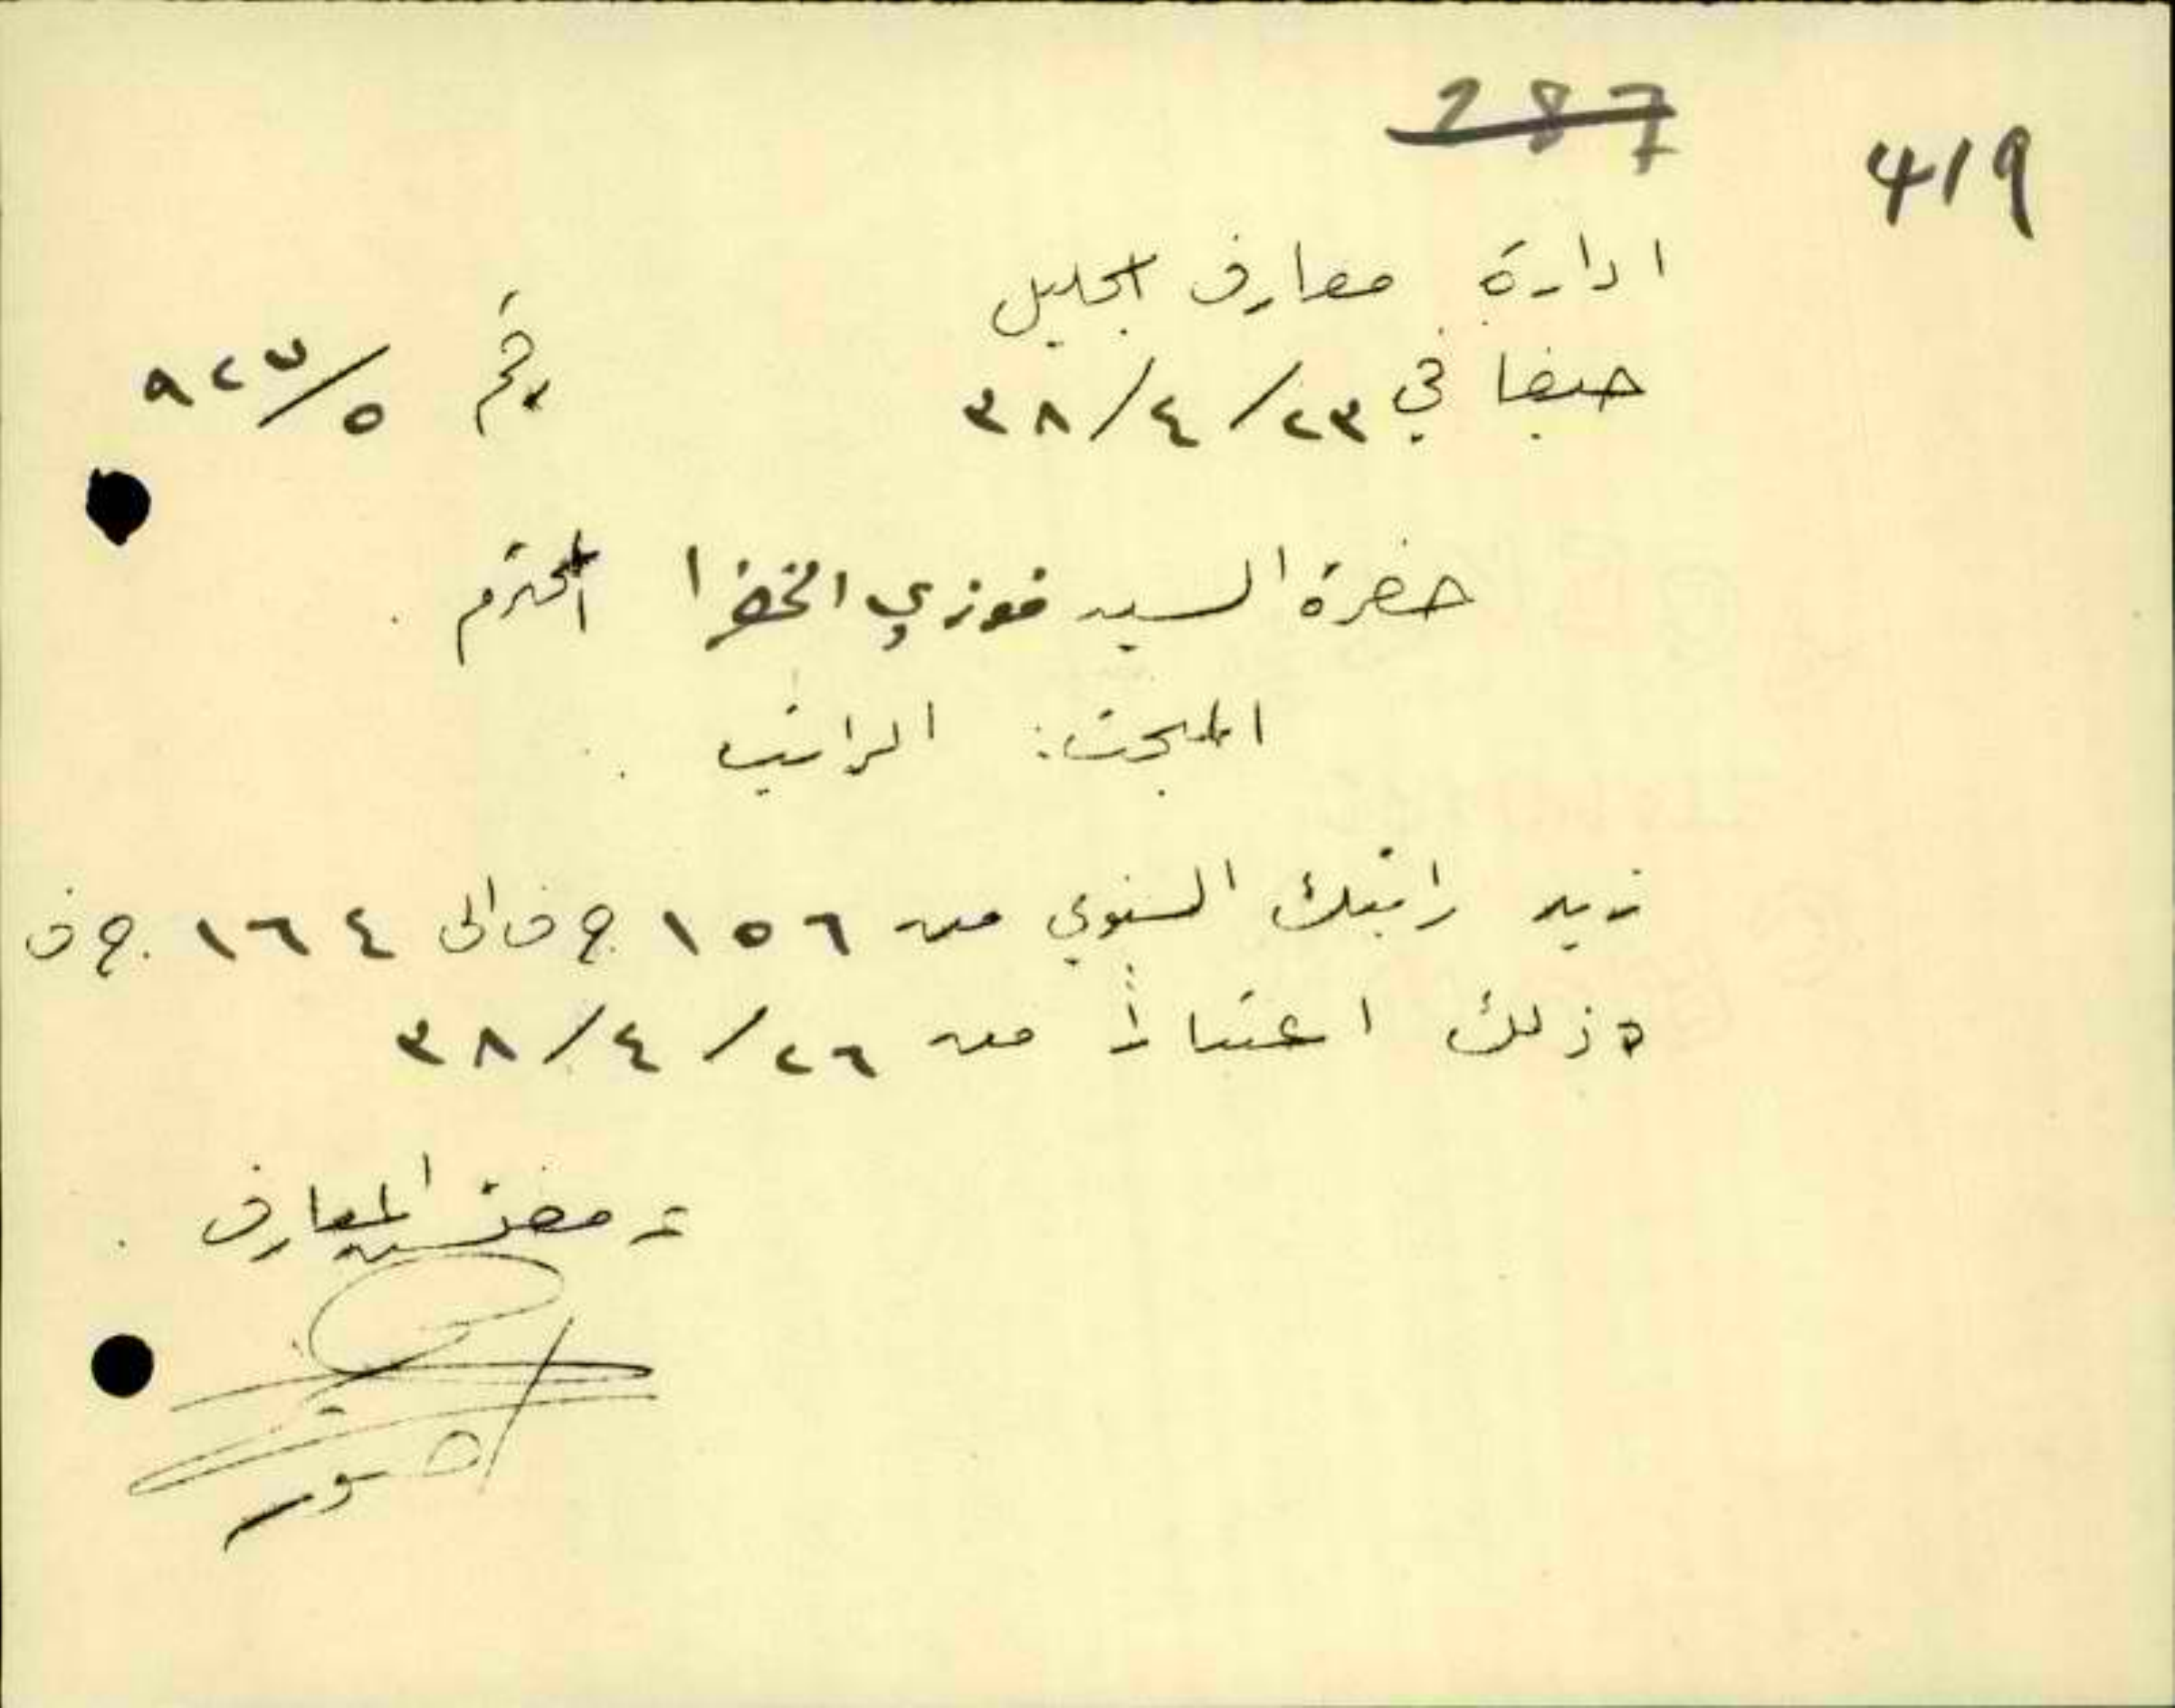 287
419
ادارة معارف الجليل
حيفا في ٢٣/٤/٣٨ رقم ٥/٩٢٣
حضرة السيد فوزي الخضرا المحترم.
المبحث: الراتب.
زيد راتبك السنوي من ١٥٦ ج ف الى ١٦٤ ج ف
وذلك اعتباراً من ٢٦/٤/٣٨
مفتش المعارف.